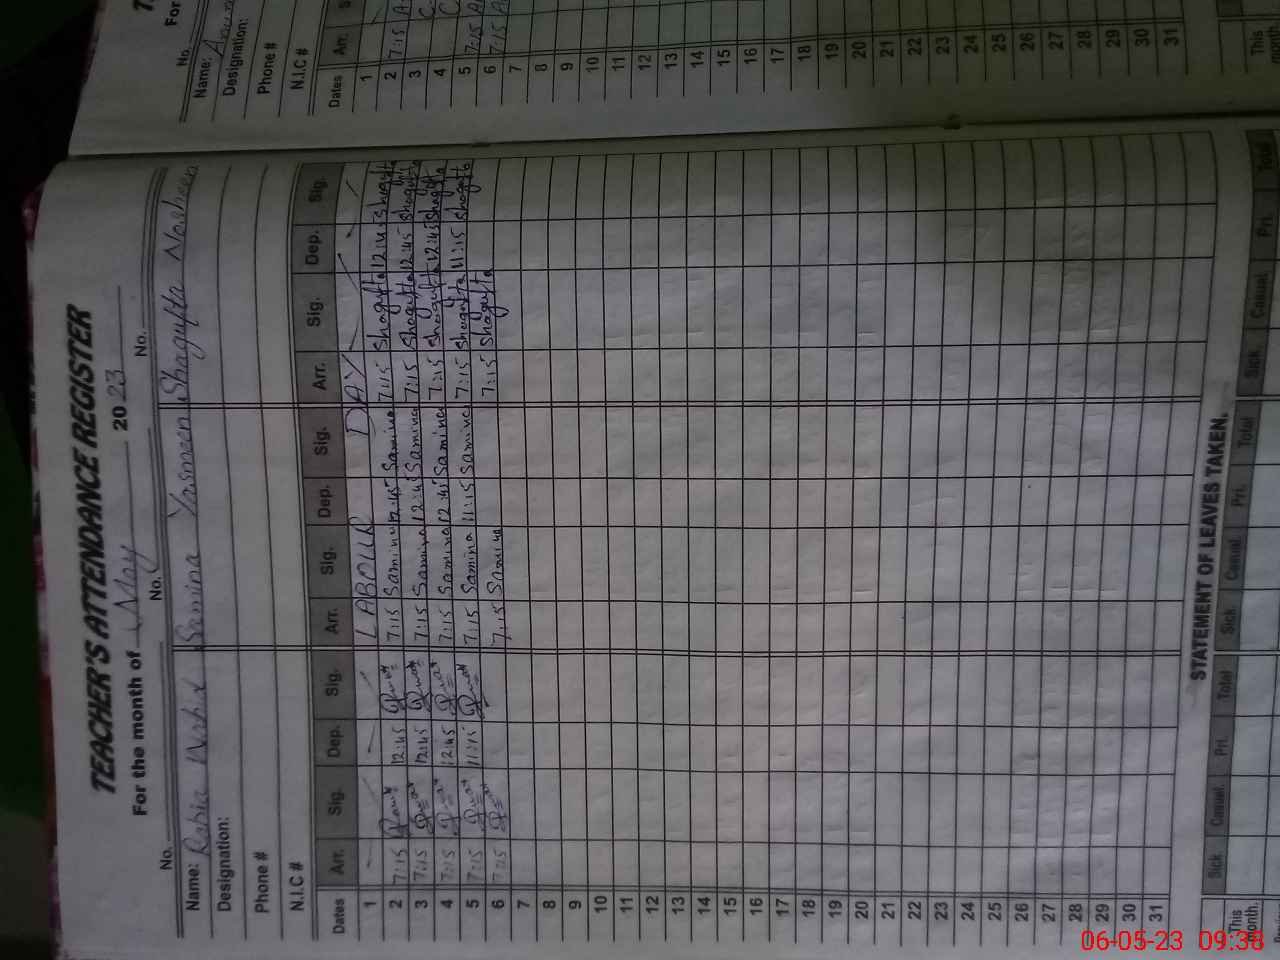 TEACHER'S ATTENDANCE REGISTER
For the month of May 2023
No. No. No.
Name: Rabia Samina Yasmeen Shagufta Nosheen
Designation:
Phone #
N.I.C #
Dates Arr. Sig. Dep. Sig. Arr. Sig. Dep. Sig. Arr. Sig. Dep. Sig.
1 LABOUR DAY
2 7:15 12:45 7:15 Samina 12:45 Samina 7:15 Shagufta 12:45 Shagufta
3 7:15 12:45 7:15 Samina 12:45 Samina 7:15 Shagufta 12:45 Shagufta
4 7:15 12:45 7:15 Samina 12:45 Samina 7:15 Shagufta 12:45 Shagufta
5 7:15 11:15 7:15 Samina 11:15 Samina 7:15 Shagufta 11:15 Shagufta
6 7:15 7:15 Samina 7:15 Shagufta
7
8
9
10
11
12
13
14
15
16
17
18
19
20
21
22
23
24
25
26
27
28
29
30
31
STATEMENT OF LEAVES TAKEN.
Sick Casual Pri. Total Sick Casual Pri. Total Sick Casual Pri. Total
This month.
For
No.
Name:
Designation:
Phone #
N.I.C #
Dates Arr.
1
2 7:15
3
4
5 7:15
6 7:15
7
8
9
10
11
12
13
14
15
16
17
18
19
20
21
22
23
24
25
26
27
28
29
30
31
This month.
06-05-23 09:38